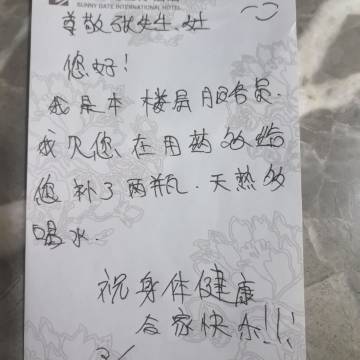 SUNNY DATE INTERNATIONAL HOTEL
尊敬张先生.
您好!
我是本楼层服务员.
我见您、在用药多给
您补了两瓶.天热多
喝水.
祝身体健康
合家快乐!!!